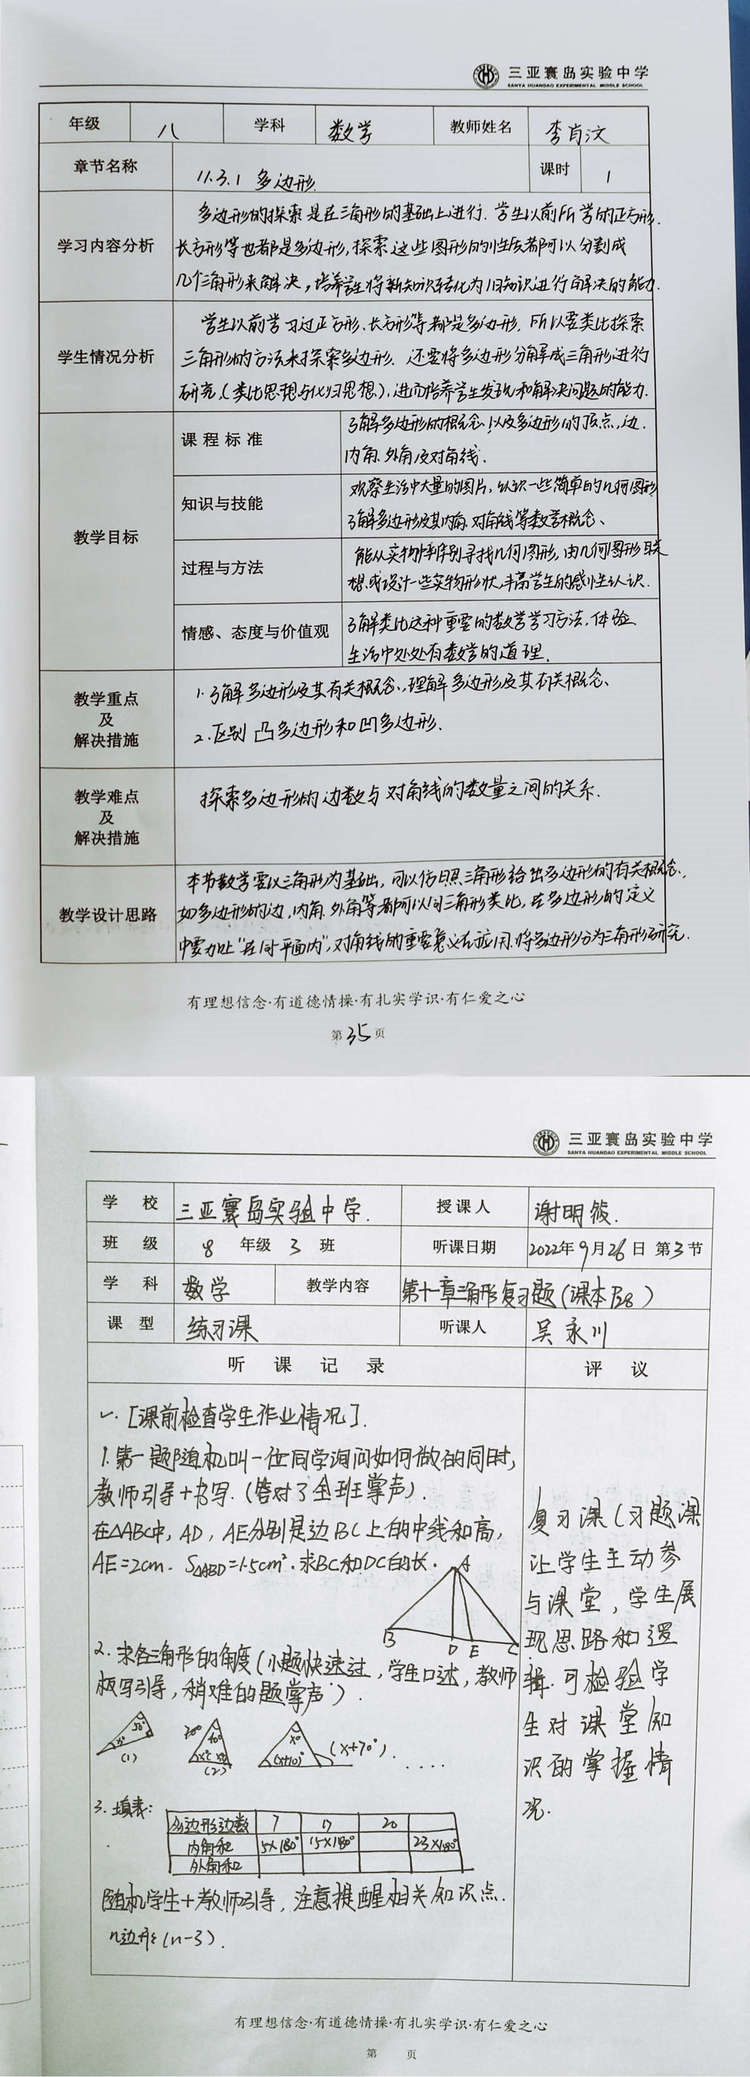 三亚寰岛实验中学
SANYA HUANDAO EXPERIMENTAL MIDDLE SCHOOL
年级 八 学科 数学 教师姓名 李肖汶
章节名称 11.3.1 多边形 课时 1
学习内容分析
多边形的探索是在三角形的基础上进行. 学生以前所学的正方形.
长方形等也都是多边形, 探索这些图形的性质都可以分割成
几个三角形来解决, 培养学生将新知识转化为旧知识进行解决的能力.
学生情况分析
学生以前学习过正方形、长方形等都是多边形. 所以要类比探索
三角形的方法来探索多边形. 还要将多边形分解成三角形进行
研究.(类比思想与化归思想), 进而培养学生发现和解决问题的能力.
教学目标
课程标准
了解多边形的概念, 以及多边形的顶点, 边.
内角. 外角及对角线.
知识与技能
观察生活中大量的图片, 认识一些简单的几何图形
了解多边形及其内角. 对角线等数学概念、
过程与方法
能从实物中辨别寻找几何图形, 由几何图形联
想或设计一些实物形状, 丰富学生的感性认识.
情感、态度与价值观
了解类比这种重要的数学学习方法, 体验
生活中处处有数学的道理.
教学重点
及
解决措施
1. 了解多边形及其有关概念、理解多边形及其有关概念、
2. 区别凸多边形和凹多边形.
教学难点
及
解决措施
探索多边形的边数与对角线的数量之间的关系.
教学设计思路
本节教学要以三角形为基础, 可以仿照三角形给出多边形的有关概念.
如多边形的边, 内角. 外角等都可以同三角形类比, 在多边形的定义
中要加上"在同一平面内", 对角线的重要意义在应用. 将多边形分为三角形研究.
有理想信念·有道德情操·有扎实学识·有仁爱之心
第 35 页
三亚寰岛实验中学
SANYA HUANDAO EXPERIMENTAL MIDDLE SCHOOL
学校 三亚寰岛实验中学. 授课人 谢明筱.
班级 8 年级 3 班 听课日期 2022年9月26日 第3节
学科 数学 教学内容 第十一章三角形复习题(课本P28)
课型 练习课 听课人 吴永川
听课记录 评议
一. [课前检查学生作业情况].
1. 第一题随机叫一位同学询问如何做的同时,
教师引导+书写. (答对了全班掌声).
在△ABC中, AD, AE分别是边BC上的中线和高,
AE=2cm. S△ABD=1.5cm². 求BC和DC的长.
A
B D E C
2. 求各三角形的角度(小题快速过, 学生口述, 教师
板写引导, 稍难的题掌声).
(1)
(2)
x°
(x+10)°
(x+70°). ....
3. 填表:
多边形边数 7 17 20
内角和 5×180° 15×180° 23×180°
外角和
随机学生+教师引导, 注意提醒相关知识点.
n边形(n-3).
复习课(习题课
让学生主动参
与课堂, 学生展
现思路和逻
辑. 可检验学
生对课堂知
识的掌握情
况.
有理想信念·有道德情操·有扎实学识·有仁爱之心
第 页